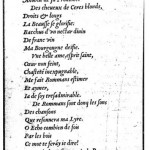 Des cheueux de Ceres blonds,
Droits & longs
La Beausse se glorifie:
Bacchus d'vn nectar diuin
De franc vin
Ma Bourgongne
Vne belle ame, esprit saint,
Cœur non feint,
Chasteté inexpugnable,
Me fait Rommans estimer
Et aymer,
Ia de soy tresadmirable.
De Rommans sont donq les sons
Des chansons
Que resonnera ma Lyre.
O Echo combien de fois
Par les bois
Ce mot te feray ie dire!